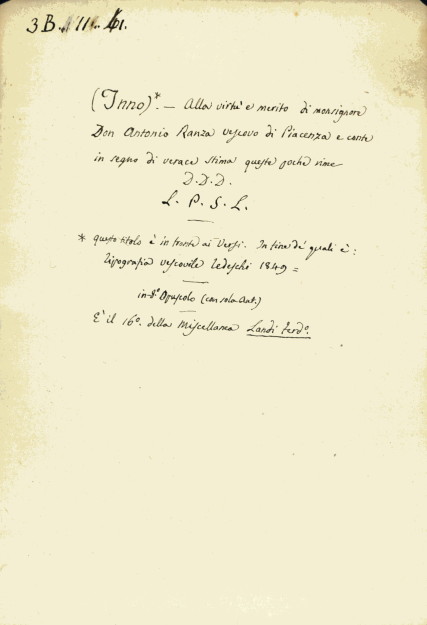 3 B. 11. 41.
(Inno)*. — Alla virtù e merito di monsignore
Don Antonio Ranza vescovo di Piacenza e conte
in segno di verace stima queste poche rime
D. D. D.
L. P. S. L.
* questo titolo è in fronte ai versi. In fine de' quali è:
Tipografia vescovile Tedeschi 1849 =
in-8° Opuscolo (con sola ant.)
È il 16°. della Miscellanea Landi ferdo.